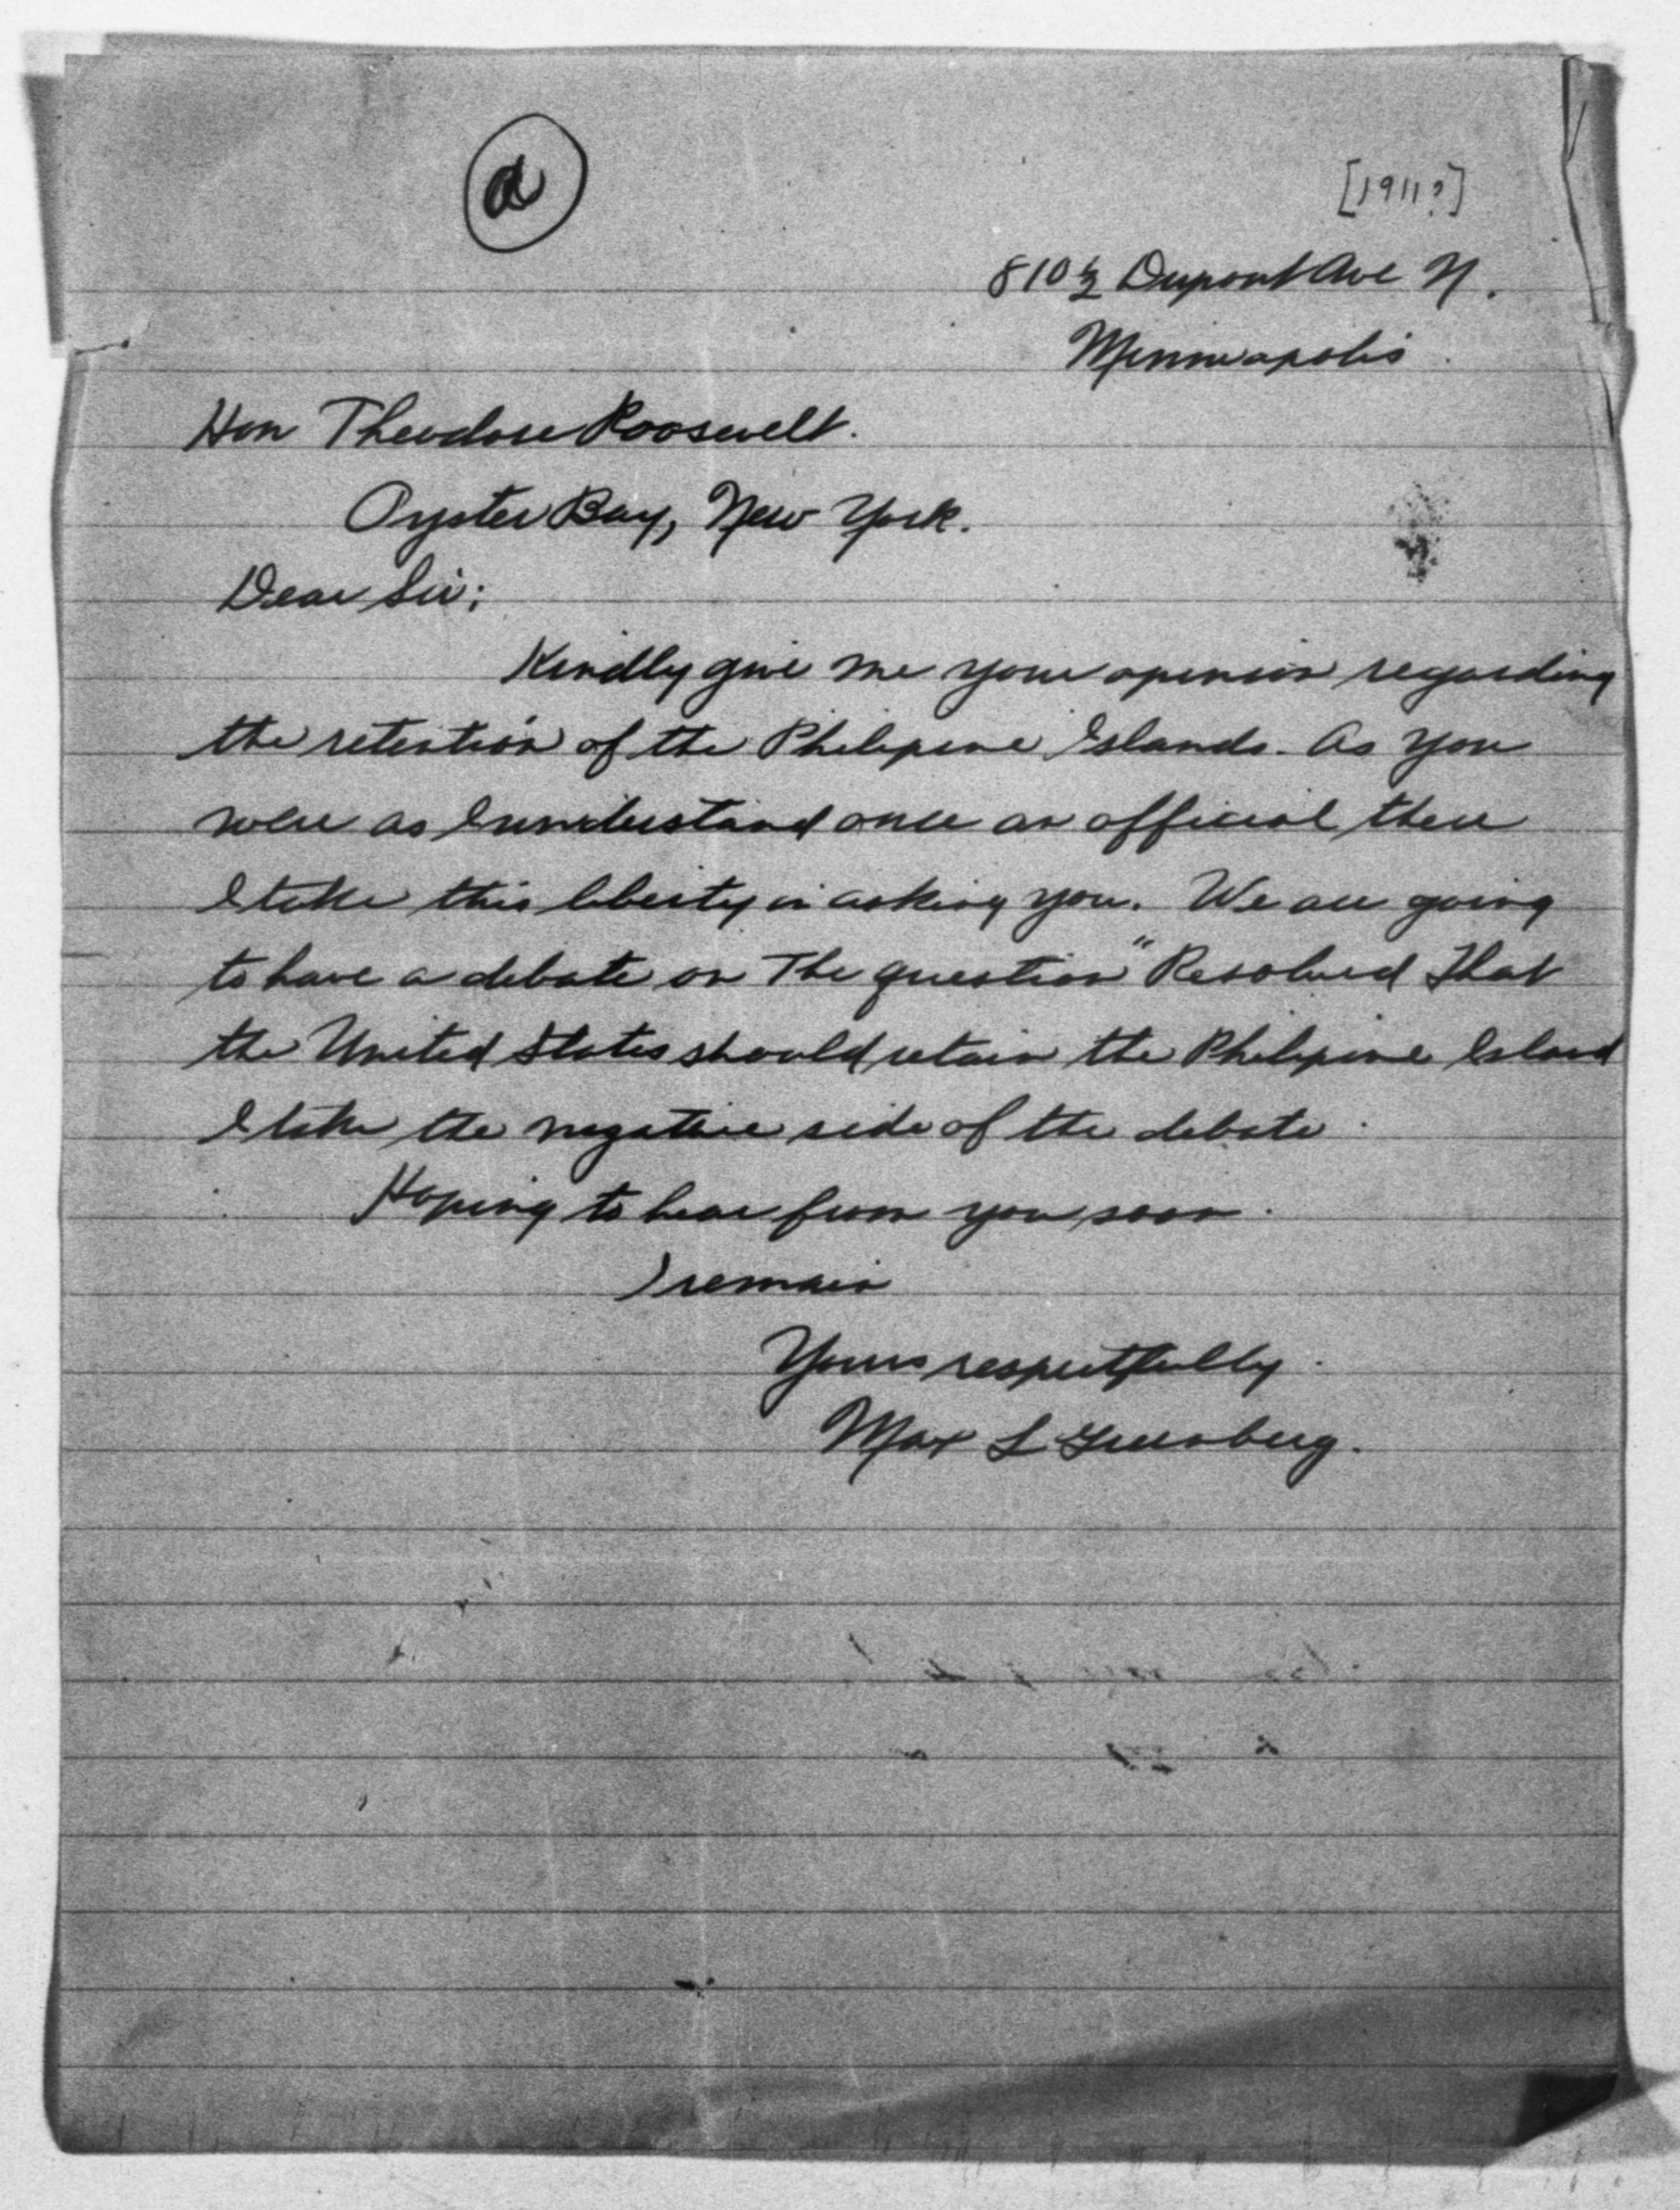 a
[1911?]
810 1/2 Dupont Ave N.
Minneapolis
Hon Theodore Roosevelt.
Oyster Bay, New York.
Dear Sir;
Kindly give me your opinion regarding
the retention of the Philipine Islands. As you
were as I understand once an official there
I take this liberty in asking you. We are going
to have a debate on The question "Resolved That
the United States should retain the Philipine Island
I take the negative side of the debate.
Hoping to hear from you soon.
I remain
Yours respectfully.
Max L Greenberg.